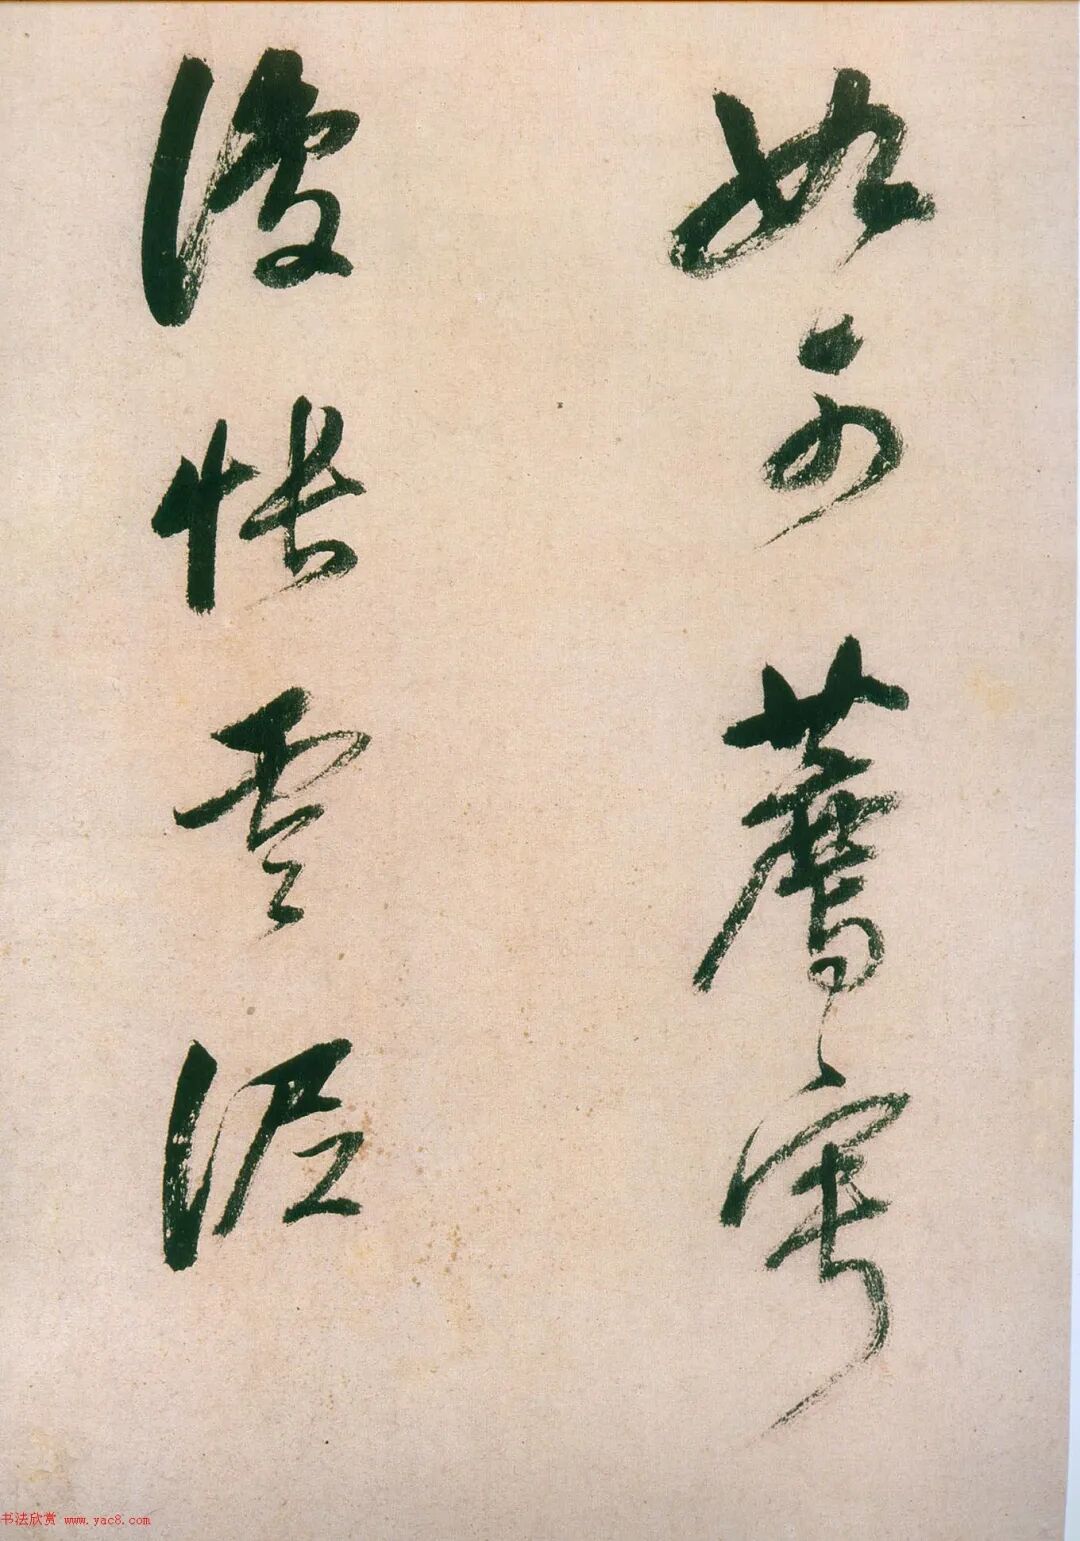 如可薦寧
復悵雲泥
书法欣赏 www.yac8.com